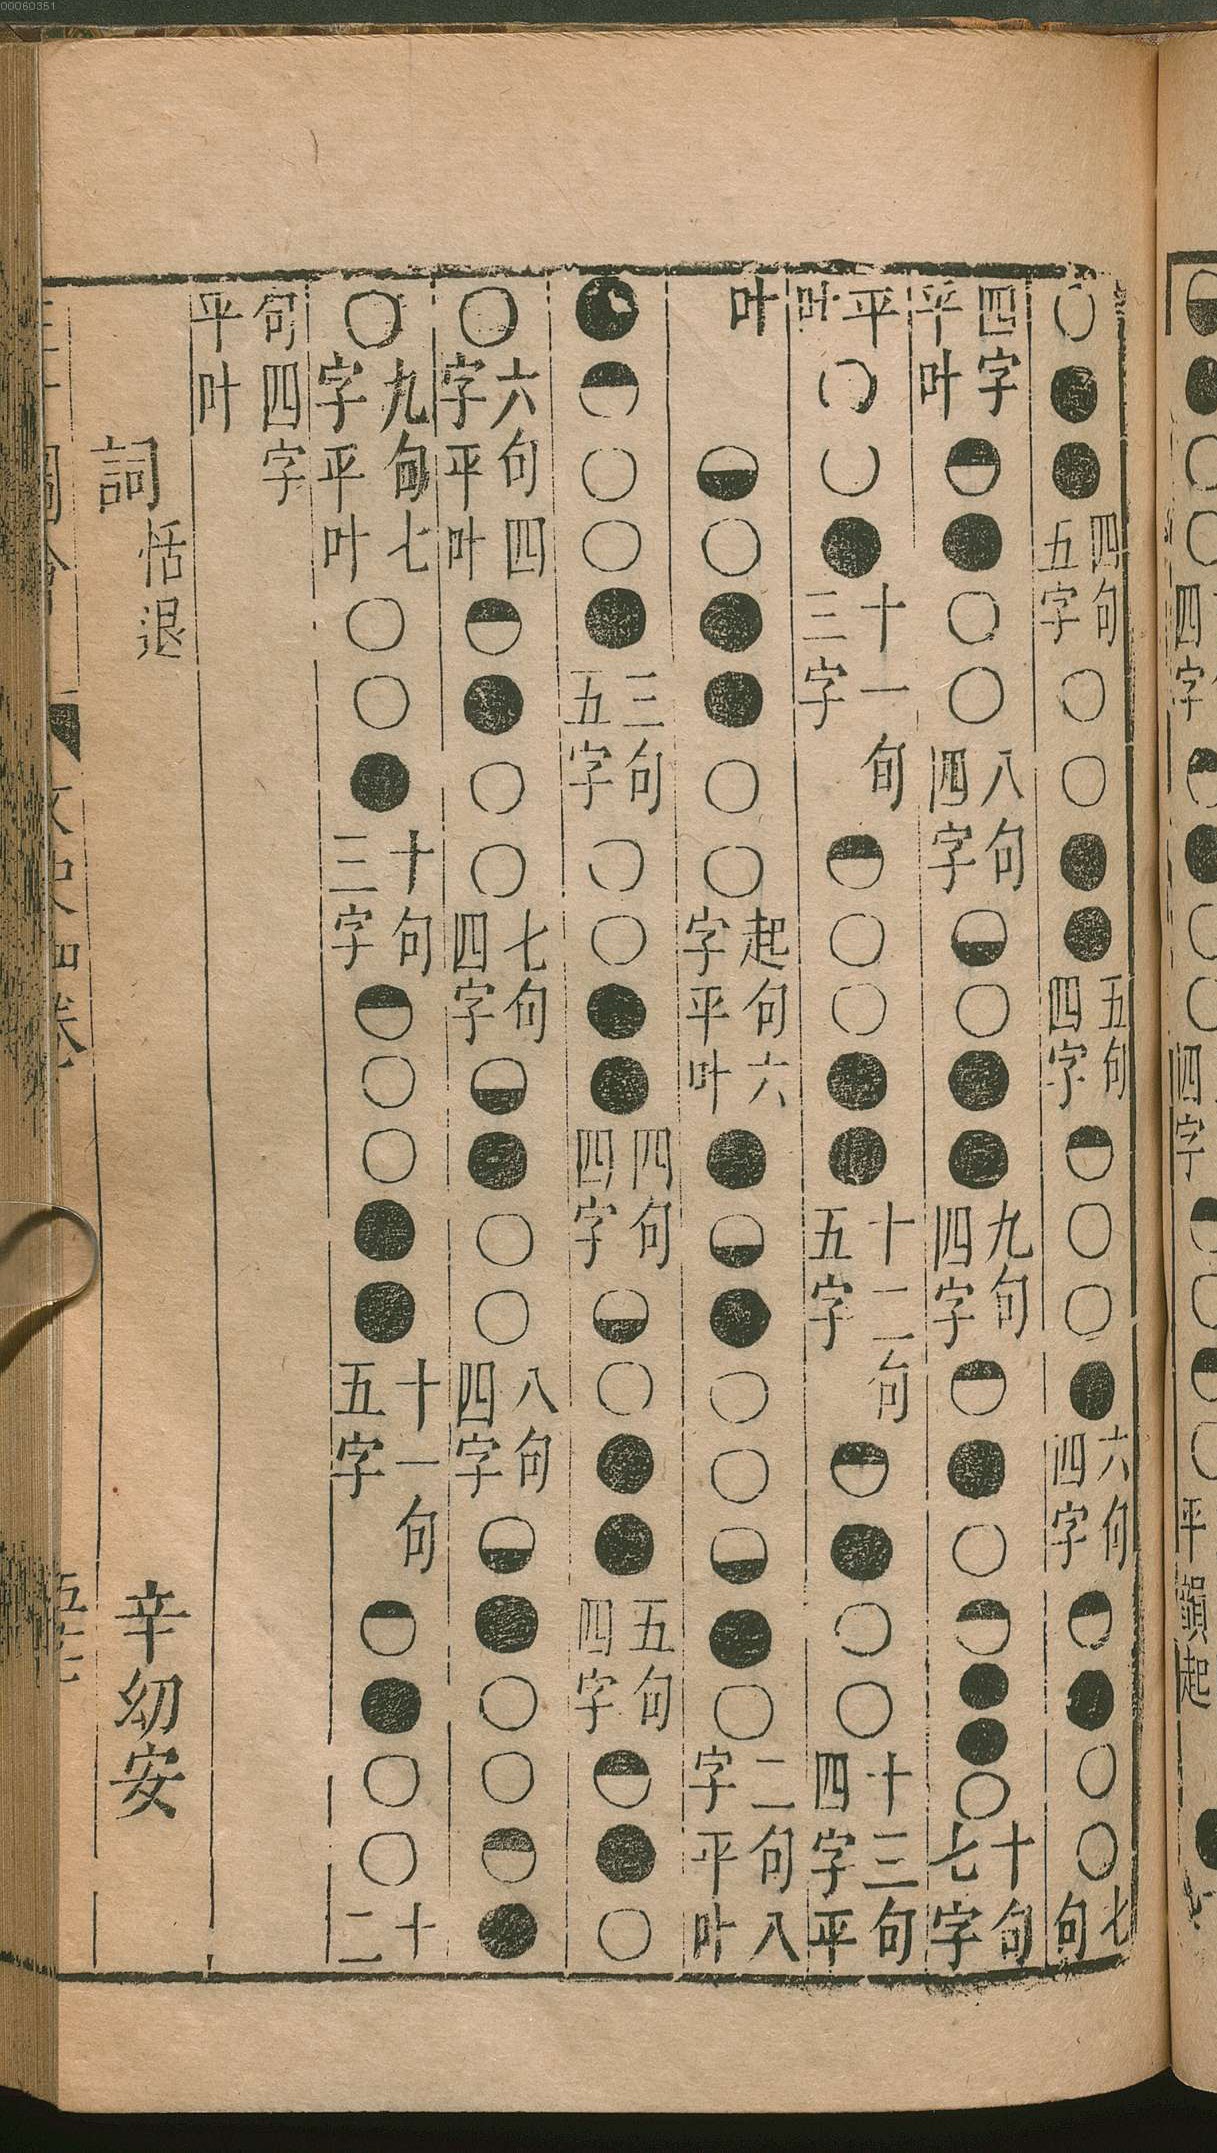 00060351
○●●四句五字○○●●五句四字◓○○●六句四字◓●○○七句
四字平叶◓●○○八句四字◒○●●九句四字◓●○◓●●○十句七字
平叶○○●十一句三字◓○○●●十二句五字◓●○○十三句四字平
叶
◒○●●○○起句六字平叶●◒●○○◒●○二句八字平叶
●◓○○●三句五字○○●●四句四字◒○●●五句四字◓●○
○六句四字平叶◓●○○七句四字◒●○○八句四字◒●○○◓●
○九句七字平叶○○●十句三字◓○○●●十一句五字◓●○○十二
句四字平叶
詞恬退 辛幼安